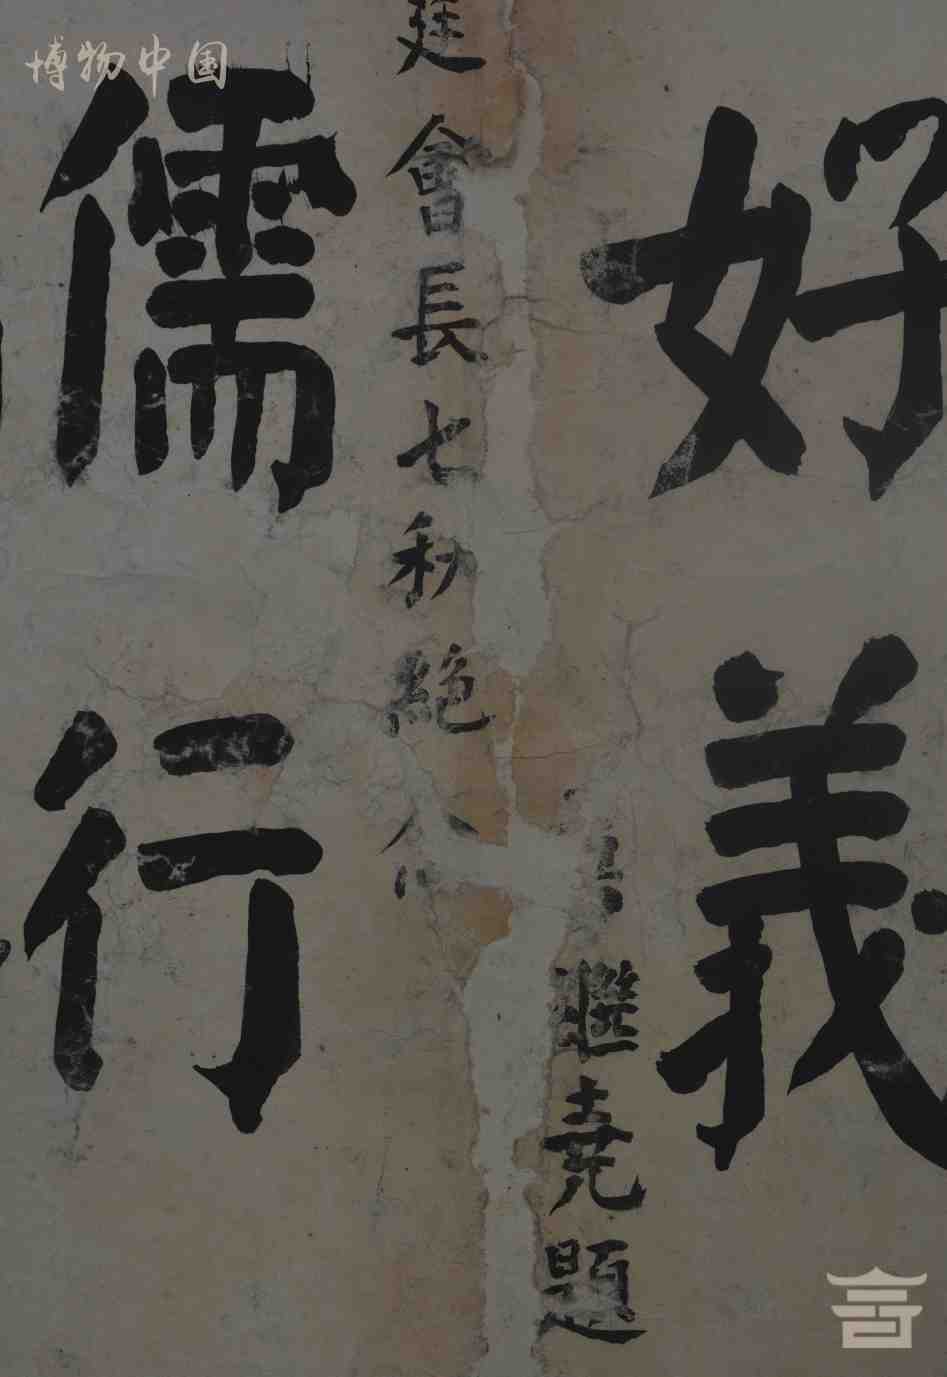 博物中国
好義
繼堯題
廷會長七秩絶
儒行